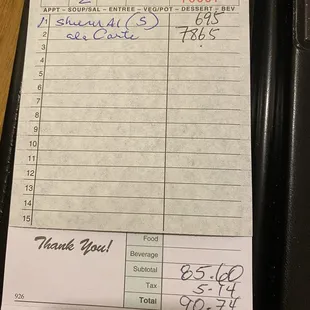 APPT – SOUP/SAL – ENTREE – VEG/POT – DESSERT – BEV
1 (S) 695
2 ala Carte 7865
3
4
5
6
7
8
9
10
11
12
13
14
15
Thank You!
Food
Beverage
Subtotal 85.60
Tax 5.14
Total 90.74
926